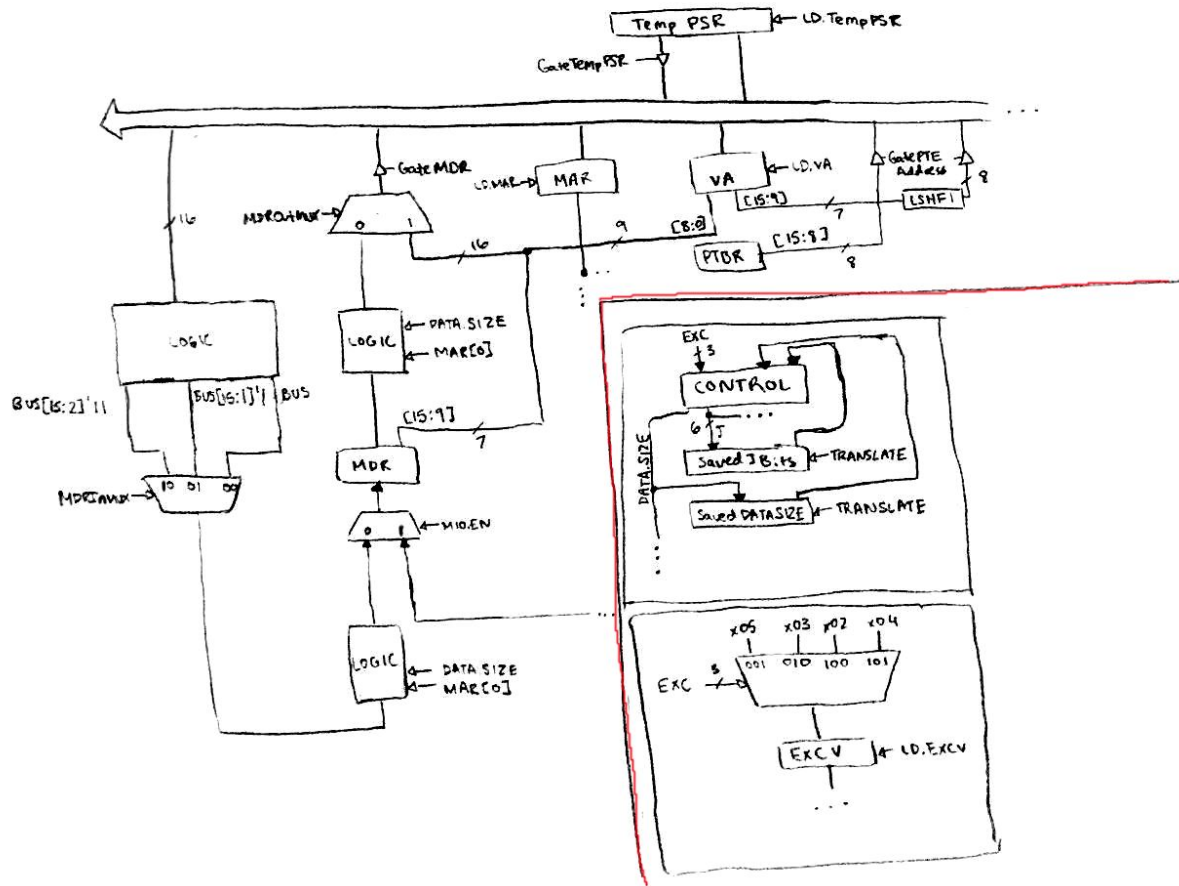 Temp PSR
LD.TempPSR
GateTempPSR
...
GateMDR
LD.MAR
MAR
VA
LD.VA
GatePTE
Address
8
16
MDROutMux
0 1
16
9
[8:0]
[15:9]
7
LSHF1
PTBR
[15:8]
8
...
LOGIC
LOGIC
DATA.SIZE
MAR[0]
BUS[15:2]'11
BUS[15:1]'1
BUS
[15:9]
7
MDR
MDRInMux
10 01 00
0 1
MIO.EN
...
LOGIC
DATA.SIZE
MAR[0]
EXC
3
CONTROL
...
6
J
DATA.SIZE
Saved J Bits
TRANSLATE
Saved DATASIZE
TRANSLATE
...
x05 x03 x02 x04
001 010 100 101
EXC
3
EXCV
LD.EXCV
...